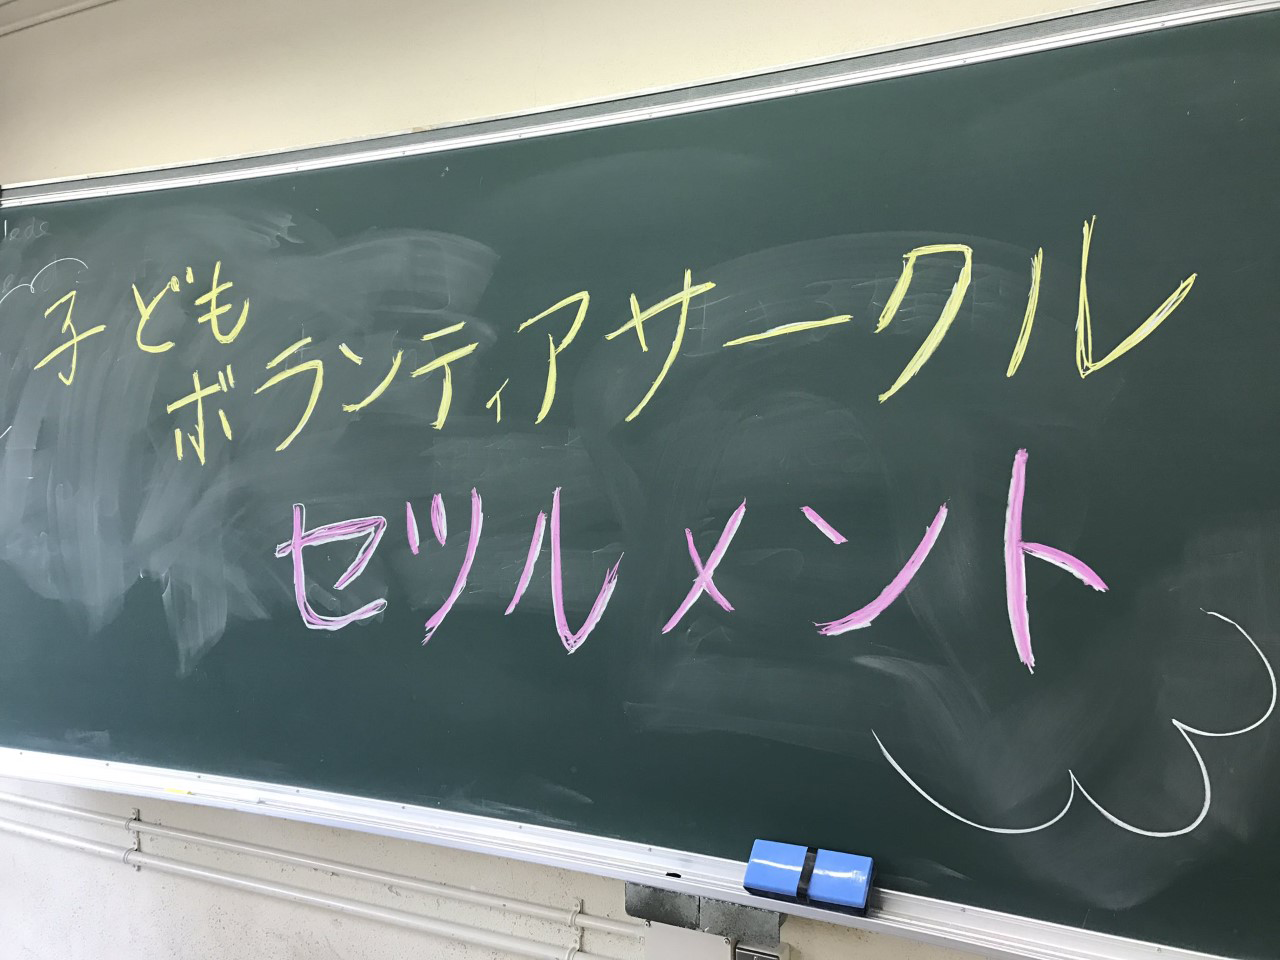 子ども
ボランティアサークル
セツルメント